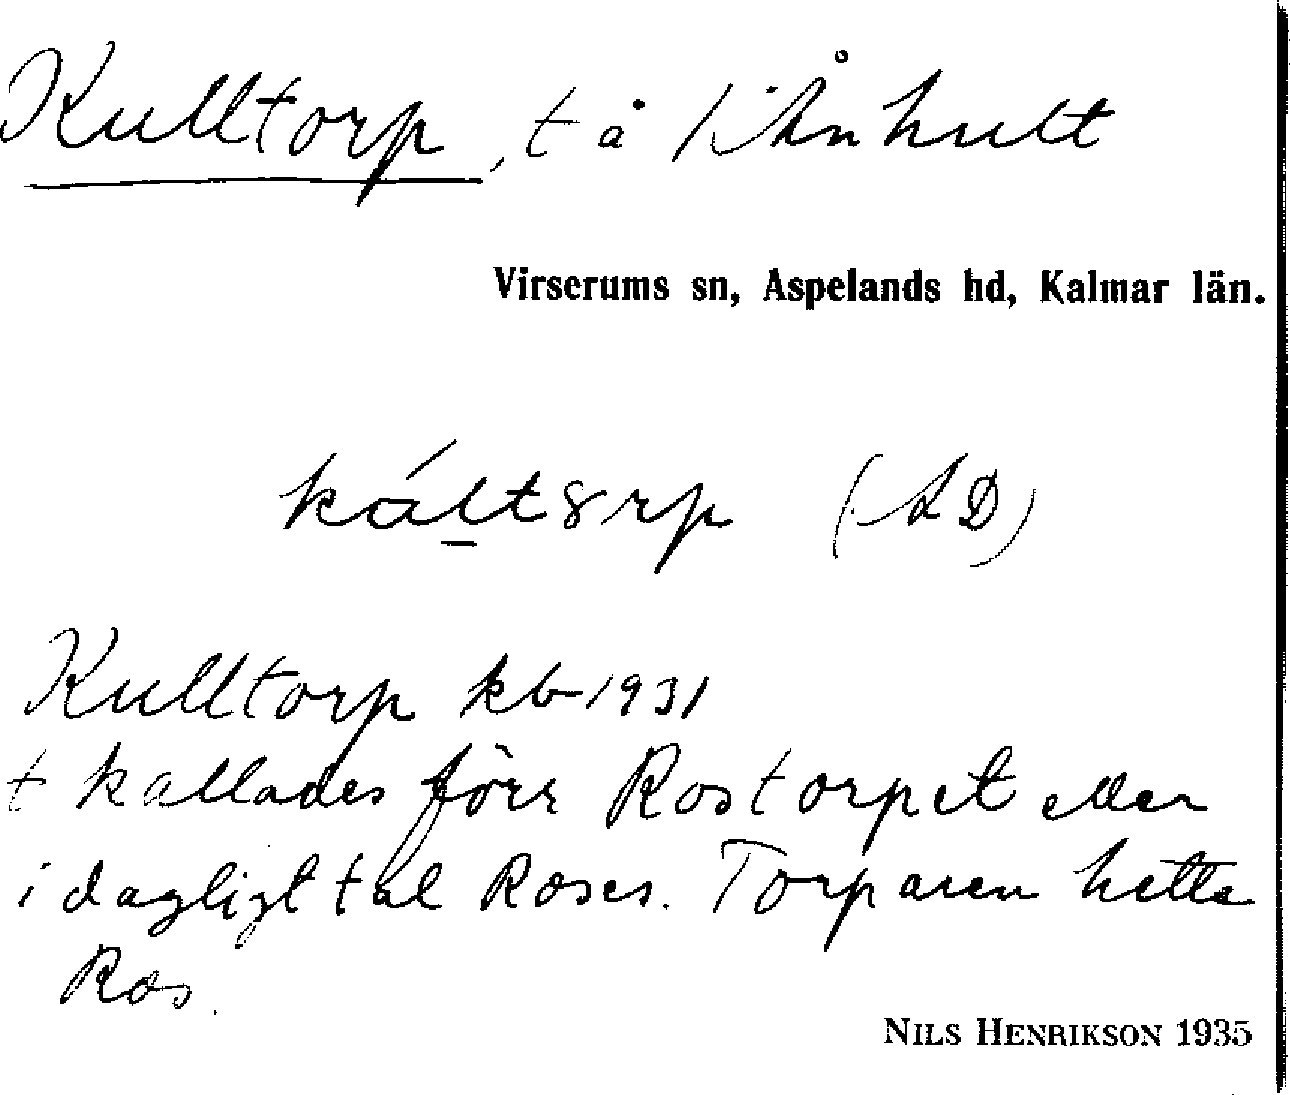 Kulltorp, t å 1 Ånhult
Virserums sn, Aspelands hd, Kalmar län.
kåltorp (AD)
Kulltorp kb 1931
t kallades förr Rostorpet eller
i dagligt tal Roses. Torparen hette
Ros.
NILS HENRIKSON 1935